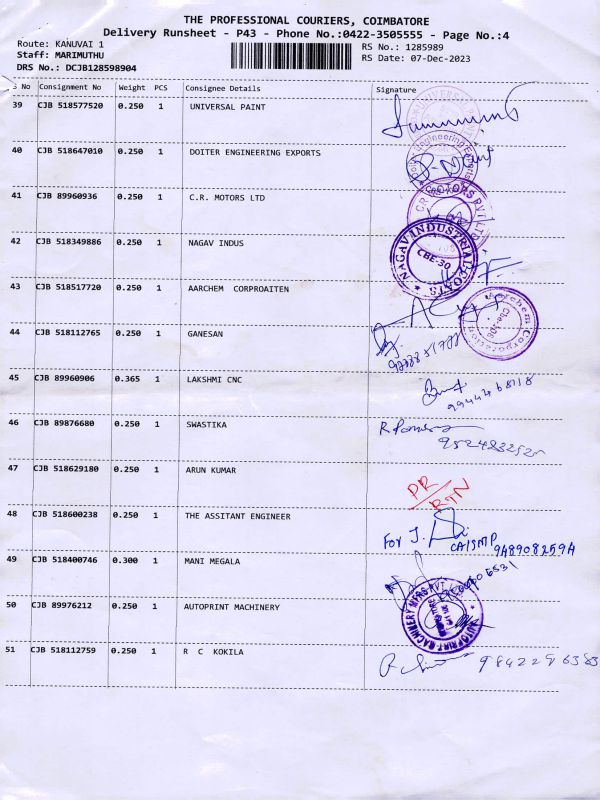 THE PROFESSIONAL COURIERS, COIMBATORE
Delivery Runsheet - P43 - Phone No.:0422-3505555 - Page No.:4
Route: KANUVAI 1 RS No.: 1285989
Staff: MARIMUTHU RS Date: 07-Dec-2023
DRS No.: DCJB128598904
S No Consignment No Weight PCS Consignee Details Signature
39 CJB 518577520 0.250 1 UNIVERSAL PAINT
40 CJB 518647010 0.250 1 DOITER ENGINEERING EXPORTS
41 CJB 89960936 0.250 1 C.R. MOTORS LTD
CR MOTORS PVT LTD
42 CJB 518349886 0.250 1 NAGAV INDUS
NAGAV INDUSTRIAL COATS
CBE-30
43 CJB 518517720 0.250 1 AARCHEM CORPROAITEN
Aarchem Corporation
44 CJB 518112765 0.250 1 GANESAN
45 CJB 89960906 0.365 1 LAKSHMI CNC
9944468118
46 CJB 89876680 0.250 1 SWASTIKA
47 CJB 518629180 0.250 1 ARUN KUMAR
DR/RTN
48 CJB 518600238 0.250 1 THE ASSITANT ENGINEER
For J. 9489082594
49 CJB 518400746 0.300 1 MANI MEGALA
50 CJB 89976212 0.250 1 AUTOPRINT MACHINERY
AUTOPRINT MACHINERY MFRS PVT
51 CJB 518112759 0.250 1 R C KOKILA
9842296383